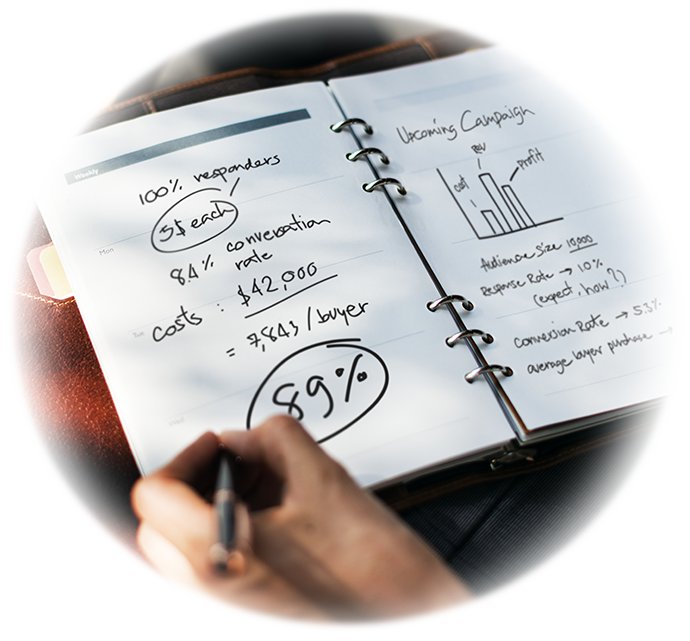 Weekly
100% responders
5$ each
Mon
8.4% conversation
rate
costs : $42,000
Tue
= 7,843 / buyer
Wed
89%
Upcoming Campaign
cost
Rev
profit
Audience Size 10,000
Response Rate → 10%
(expect, how?)
Conversion Rate → 5.3%
average buyer purchase →